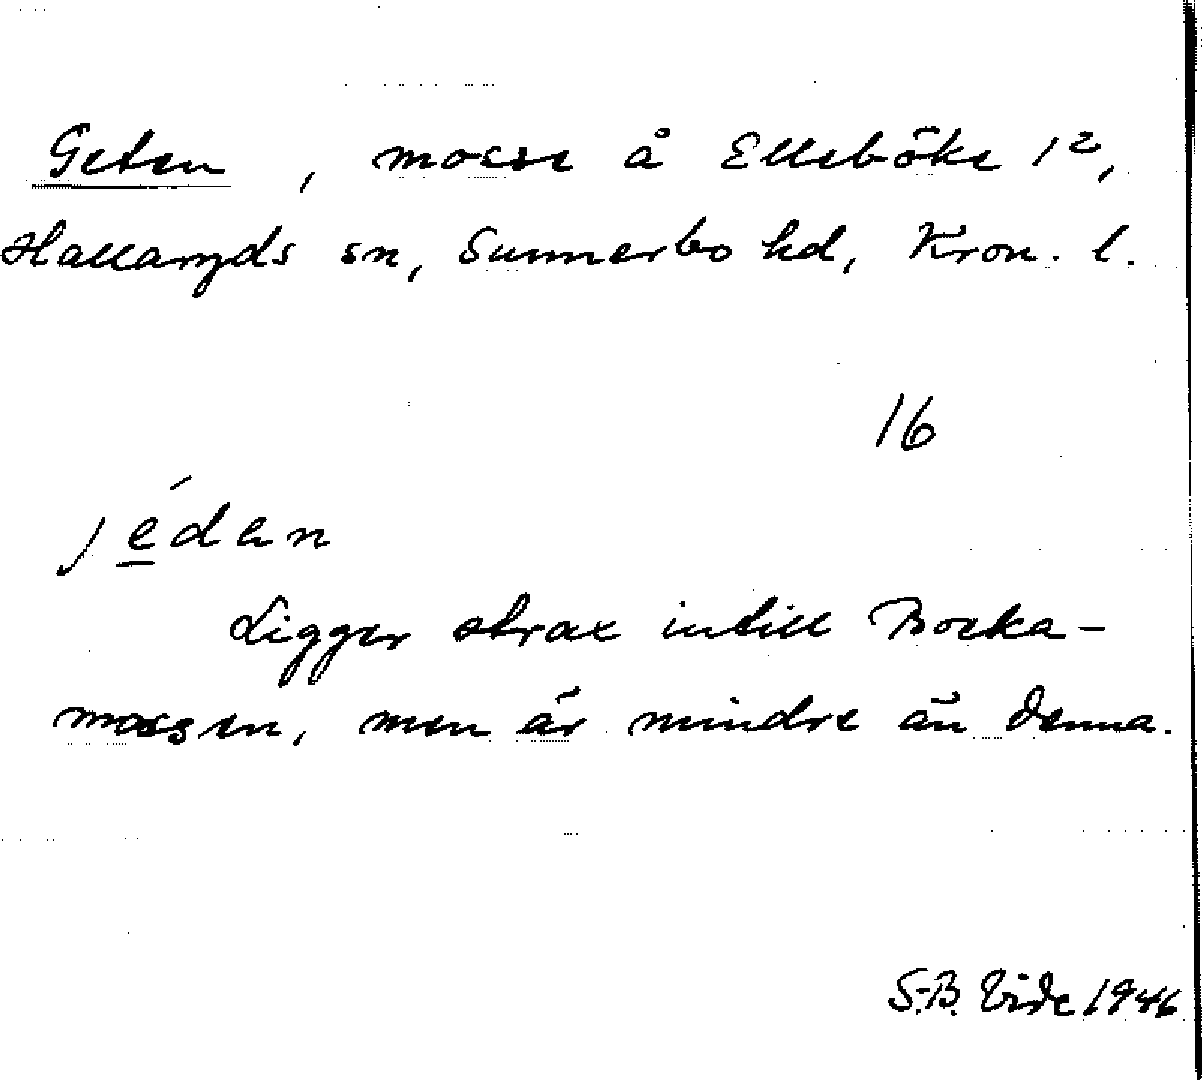 Geten, mosse å Elleböke 1²,
Hallaryds sn, Sunnerbo hd, Kron. l.
16
jéden
Ligger strax intill Bocka-
mossen, men är mindre än denna.
S.B. Vide 1946